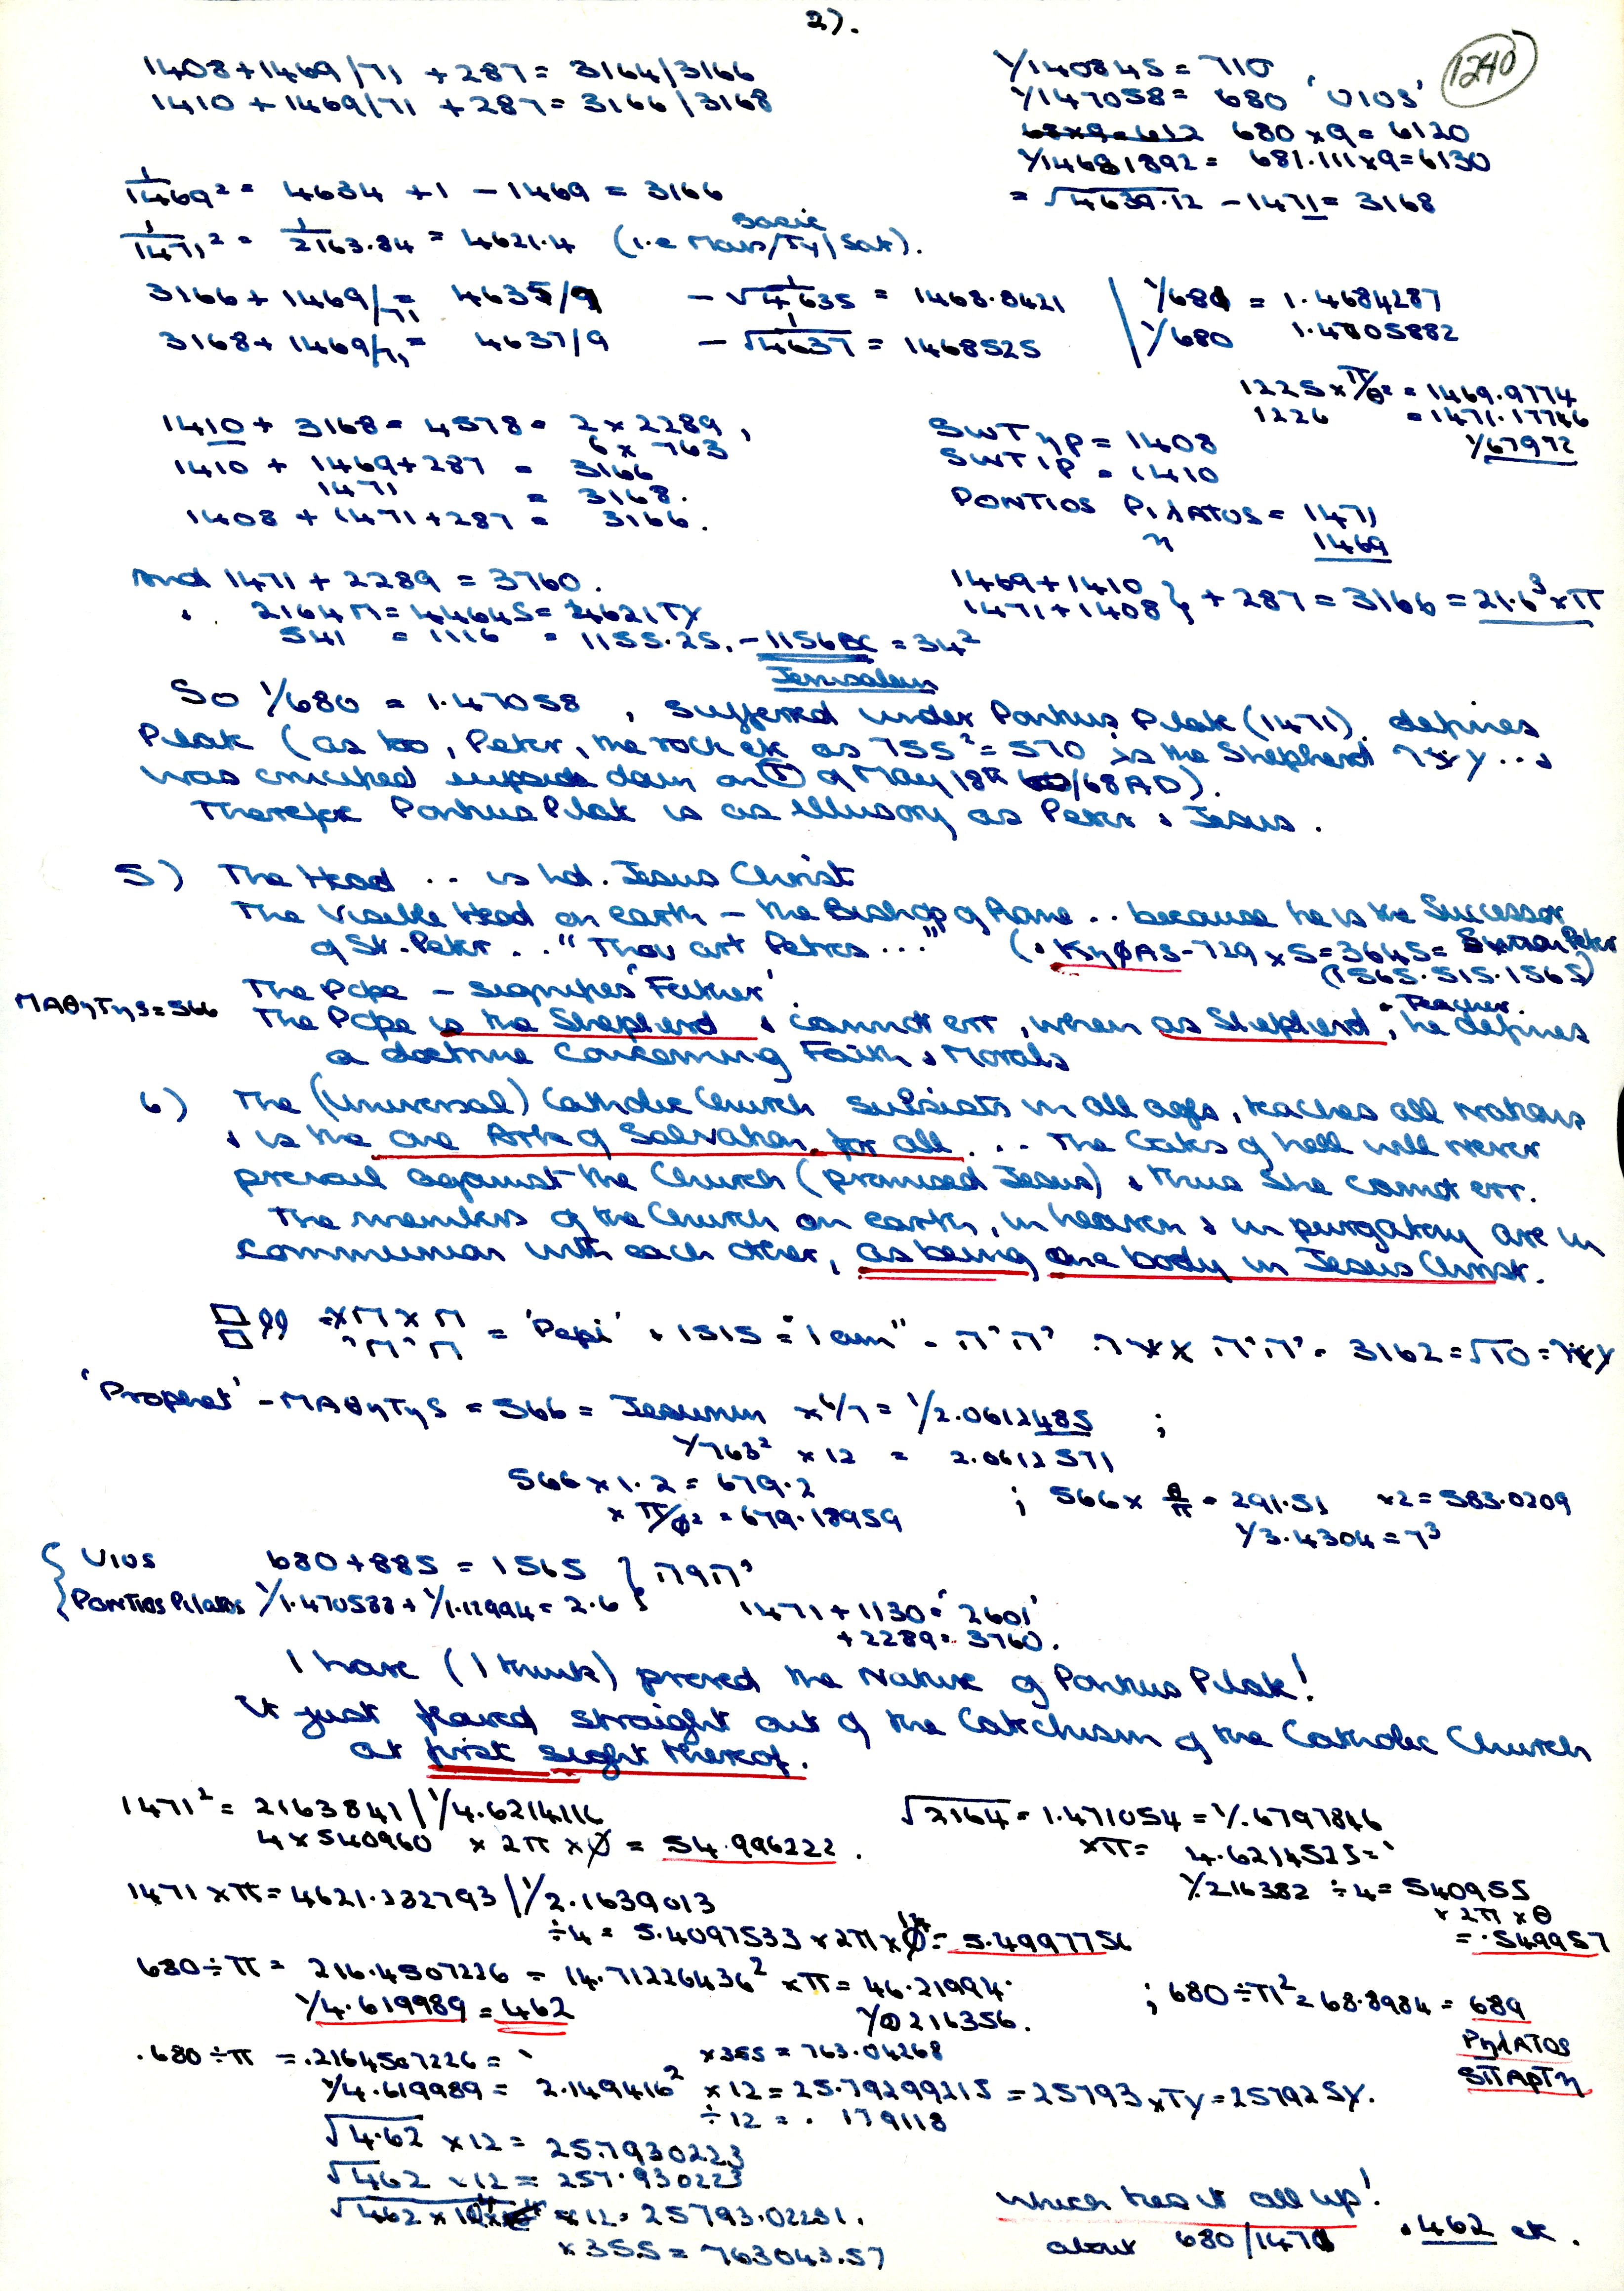 2).
1240
1408+1469/71 + 287 = 3164/3166
1410 + 1469/71 + 287 = 3166/3168
1/140845 = 710,
1/147058 = 680 'UIOS'
68x9=612 680 x9= 6120
1/14681892 = 681.111x9=6130
= √4639.12 - 1471 = 3168
1/1469² = 4634 +1 - 1469 = 3166
1/1471² = 1/2163.84 = 4621.4 (i.e Mars/Ty/Sat).
3166 + 1469/71 = 4635/9 - √1/4635 = 1468.8421
3168 + 1469/71 = 4637/9 - √1/4637 = 1468525
1/681 = 1.4684287
1/680 1.4705882
1225 x π/Ø² = 1469.9774
1226 = 1471.17746
1/67972
1410 + 3168 = 4578 = 2 x 2289,
6 x 763
1410 + 1469 + 287 = 3166
1471 = 3168.
1408 + 1471 + 287 = 3166.
SWTηP = 1408
SWTIP = 1410
PONTIOS PιλATOS = 1471
η 1469
And 1471 + 2289 = 3760.
2164 M = 4464 S = 4621 TY
541 = 1116 = 1155.25. - 1156 BC = 34²
Jerusalem
1469+1410
1471+1408 } + 287 = 3166 = 21.6³ x π
So 1/680 = 1.47058, suffered under Pontius Pilate (1471). defines
Pilate (as too, Peter, the rock etc as 755² = 570 is the Shepherd
was crucified upside down on of May 18th /68AD).
Therefore Pontius Pilate is as illusory as Peter & Jesus.
5) The Head .. is hd. Jesus Christ
The Visible Head on earth - the Bishop of Rome .. because he is the Successor
of St. Peter .. "Thou art Petros ..." (& KηφAS - 729 x 5 = 3645 = Simon Peter
(1565.515.1565)
The Pope - signifies 'Father'.
MAθηTηS = 566
The Pope is the Shepherd & cannot err, when as Shepherd, & Teacher. he defines
a doctrine concerning Faith & Morals
6) The (Universal) Catholic Church subsists in all ages, teaches all Nations
& is the one Ark of Salvation for all ... The Gates of hell will never
prevail against the Church (promised Jesus) & thus she cannot err.
The members of the Church on earth, in heaven & in purgatory are in
communion with each other, as being one body in Jesus Christ.
= 'Pepi' & 1515 = "I am" - 3162 = √10 =
'Prophet' - MAθηTηS = 566 = x 6/7 = 1/2.0612485 ;
1/763² x 12 = 2.0612571
566 x 1.2 = 679.2
x π/Ø² = 679.18959
; 566 x θ/π = 291.51 x2 = 583.0209
1/3.4304 = 7³
UIOS 680 + 885 = 1565
Pontios Pilatos 1/1.470588 + 1/1.12994 = 2.6
1471 + 1130 = '2601'
+ 2289 = 3760.
I have (I think) proved the Nature of Pontius Pilate!
It just flowed straight out of the Catechism of the Catholic Church
at first sight thereof.
1471² = 2163841 | 1/4.6214116
4 x 540960 x 2π x Ø = 54.996222.
√2164 = 1.471054 = 1/.6797846
xπ = 4.6214523 =
1/216382 ÷ 4 = 540955
x 2π x θ
= .549957
1471 x π = 4621.232793 | 1/2.1639013
÷4 = 5.4097533 x 2π x Ø = 5.4997756
680 ÷ π = 216.4507226 = 14.71226436² x π = 46.21994
1/4.619989 = 462
1/0216356.
; 680 ÷ π² = 68.8984 = 689
PηλATOS
SπApTη
.680 ÷ π = .2164507226 =
x 355 = 763.04268
1/4.619989 = 2.149416² x 12 = 25.79299215 = 25793 x Ty = 25792 SY.
÷12 = . 179118
√4.62 x 12 = 25.7930223
√462 x 12 = 257.930223
√462 x 10⁴ x 12 = 25793.02231.
x 355 = 763043.57
Which ties it all up!
about 680/1471 & 462 etc.